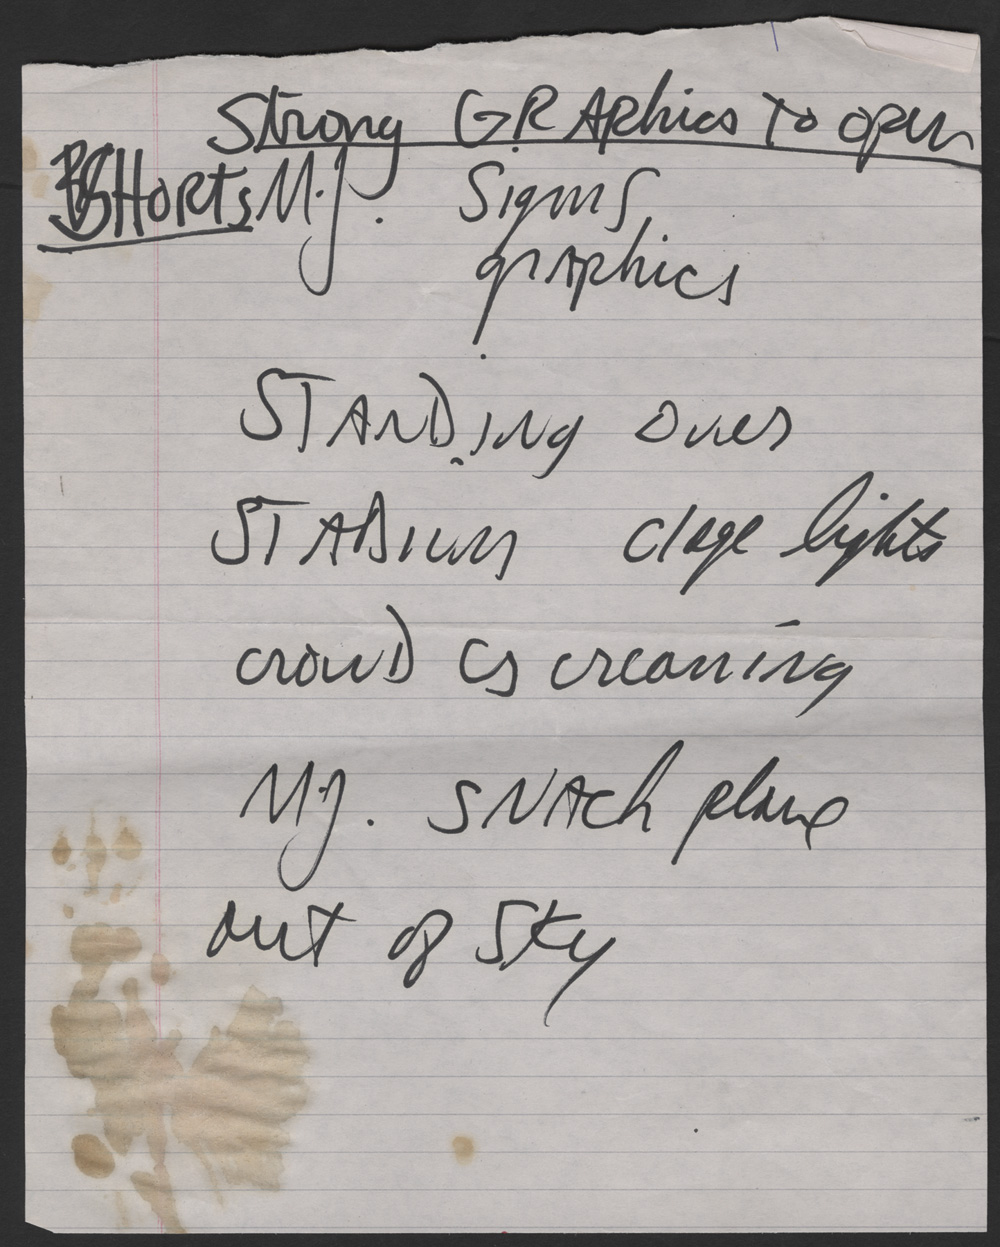 Strong GRAphics To open
SHORTS M.J. Signs
grAphics
STANDING over
STADium large lights
crowD is screaming
M.J. SNAtch plane
out of Sky